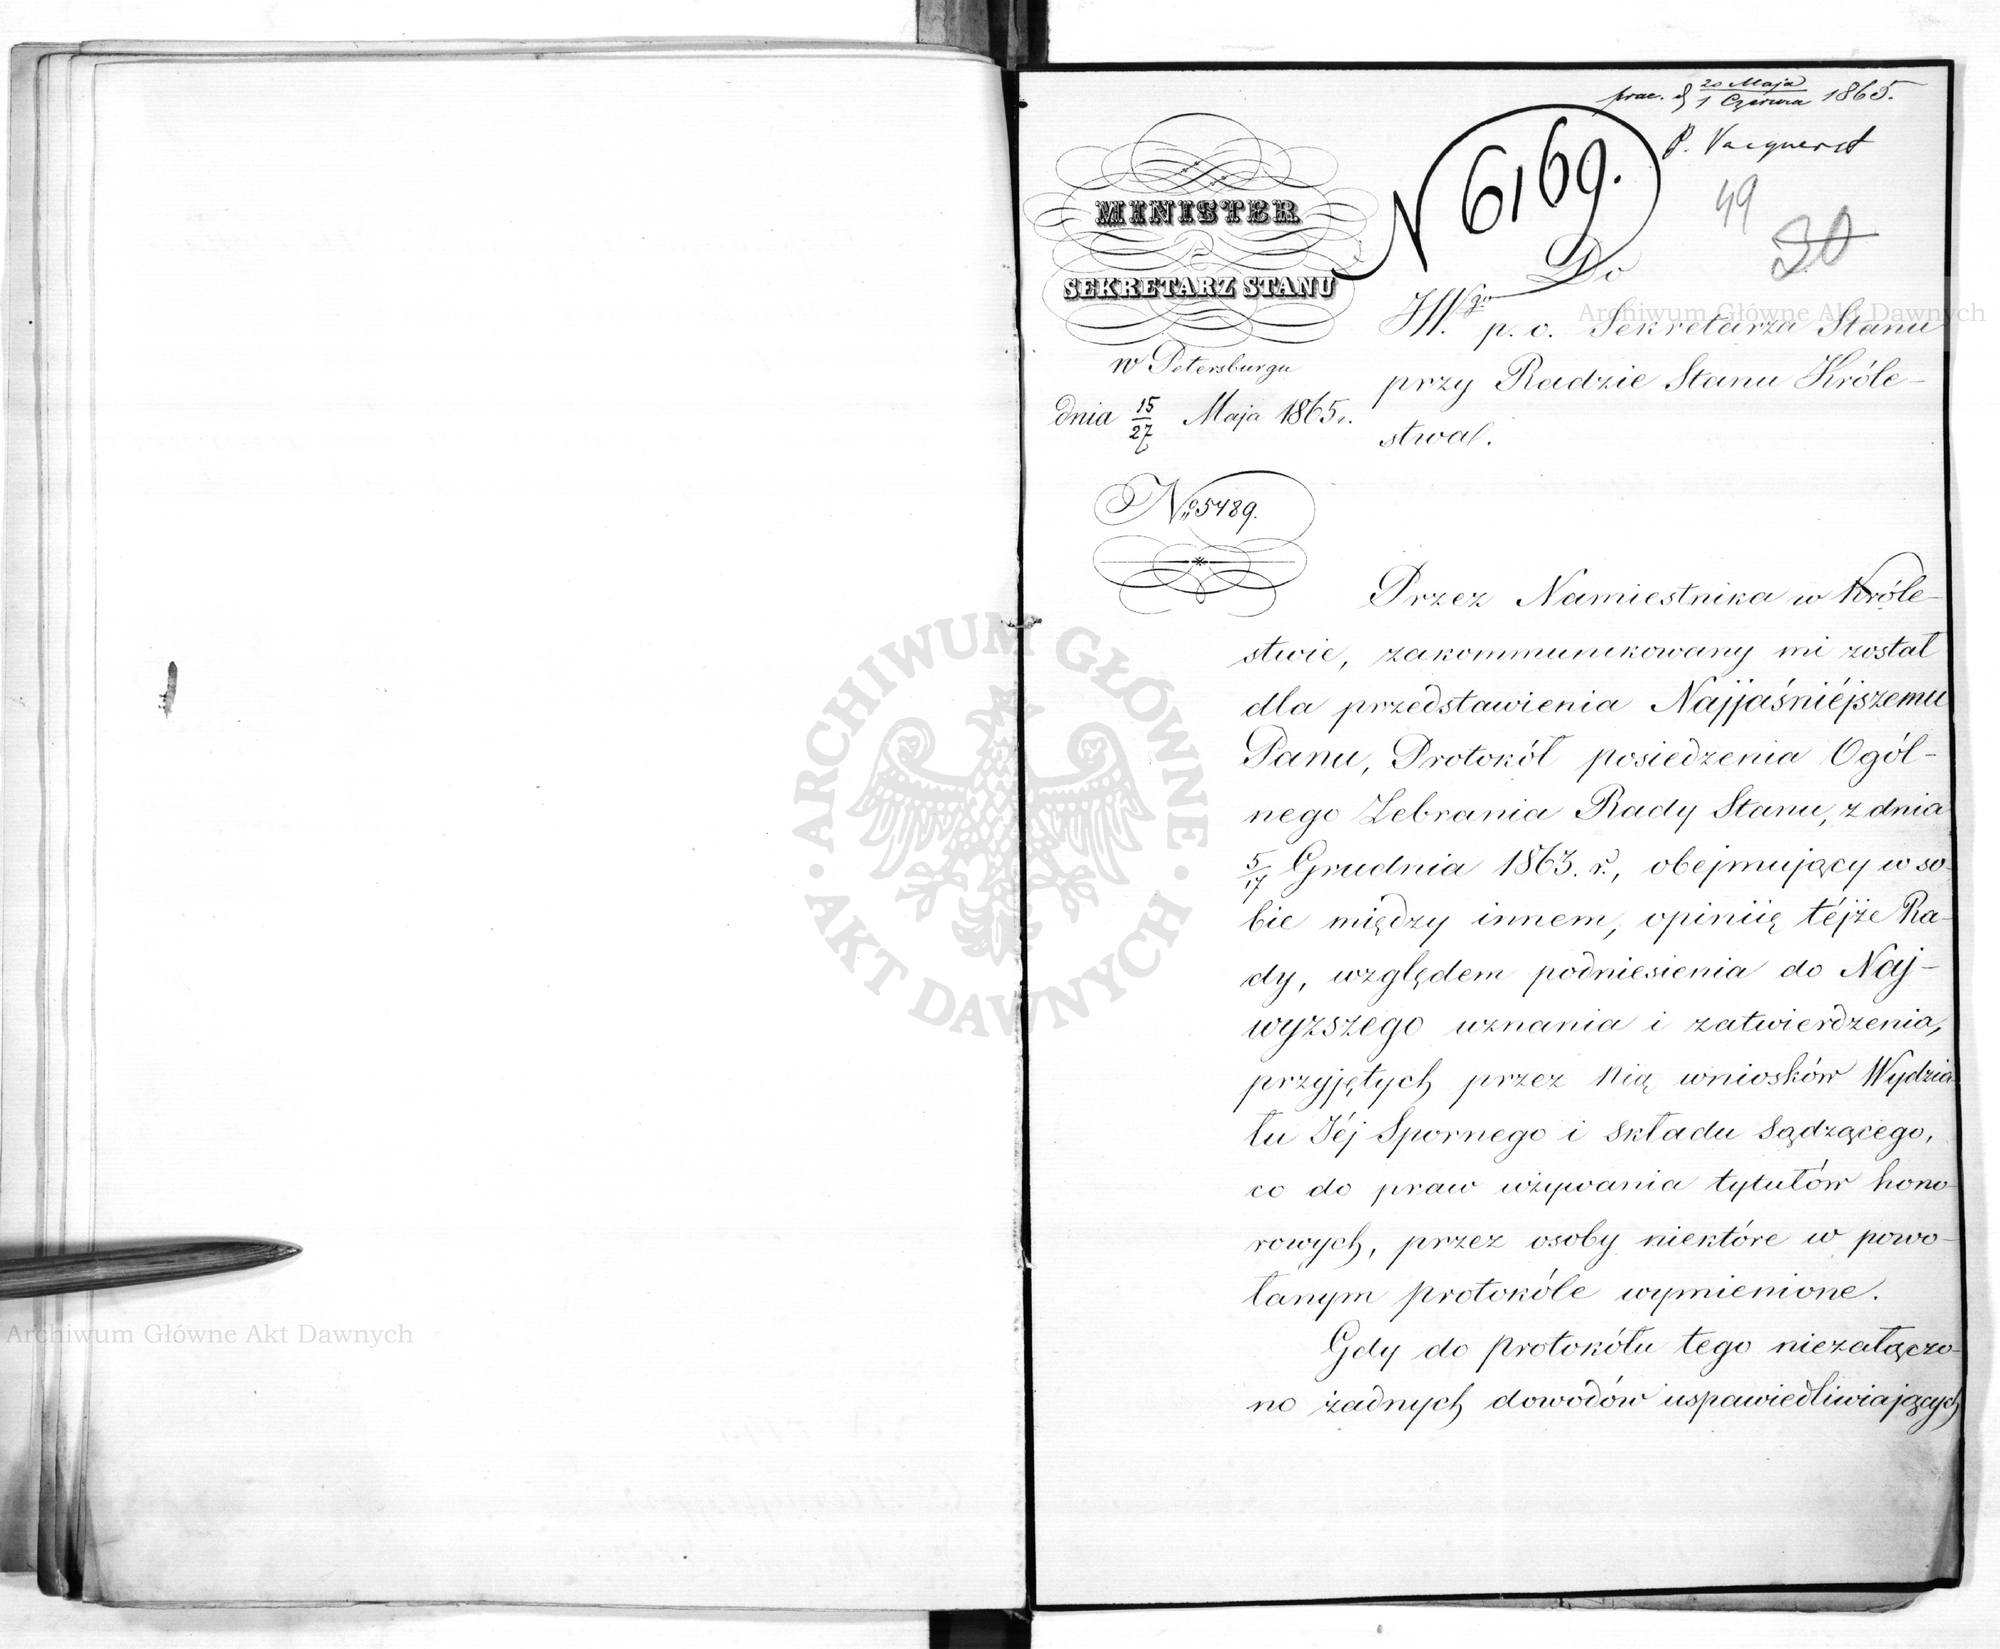 20 Maja
1 Czerwca 1865.
N 6169.
49
30
MINISTER
SEKRETARZ STANU
w Petersburgu
dnia 15/27 Maja 1865 r.
No 5489.
Do
JWgo p. o. Sekretarza Stanu
przy Radzie Stanu Króle-
stwa.
Przez Namiestnika w Króle-
stwie, zakommunikowany mi został
dla przedstawienia Najjaśniéjszemu
Panu, Protokół posiedzenia Ogól-
nego Zebrania Rady Stanu, z dnia
5/17 Grudnia 1863. r., obejmujący w so-
bie między innem, opiniię téjże Ra-
dy, względem podniesienia do Naj-
wyższego uznania i zatwierdzenia,
przyjętych przez Nią wniosków Wydzia-
łu Jéj Spornego i składu sądzącego,
co do praw używania tytułów hono-
rowych, przez osoby niektóre w powo-
łanym protokóle wymienione.
Gdy do protokółu tego niezałączo-
no żadnych dowodów uspawiedliwiających
Archiwum Główne Akt Dawnych
ARCHIWUM GŁÓWNE AKT DAWNYCH
Archiwum Główne Akt Dawnych